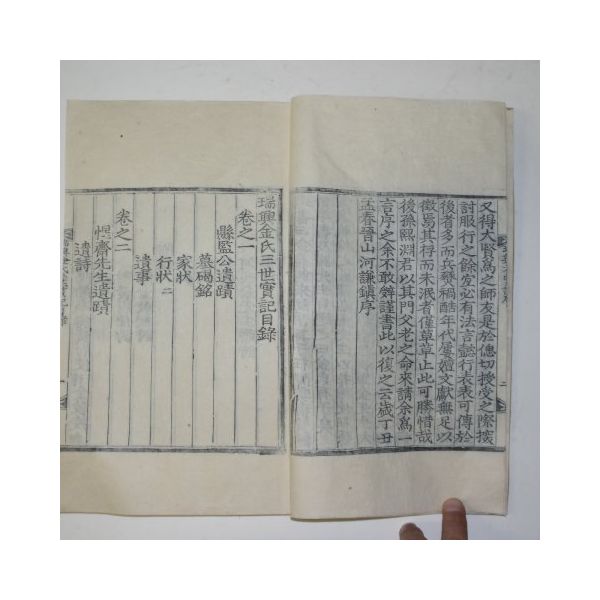 又得大賢爲之師友是於偲切授受之際擩
討服行之餘宜必有法言懿行表表可傳於
後者多而其奈禍酷年代寖邈文獻無足以
徵焉其得而未泯者僅草草止此可勝惜哉
後孫熙淵君以其門父老之命來請余爲一
言序之余不敢辭謹書此以復之云歲丁丑
孟春晉山河謙鎭序
瑞興金氏三世實記目錄
卷之一
縣監公遺蹟
墓碣銘
家狀
行狀二
遺事
卷之二
惺齋先生遺蹟
遺詩